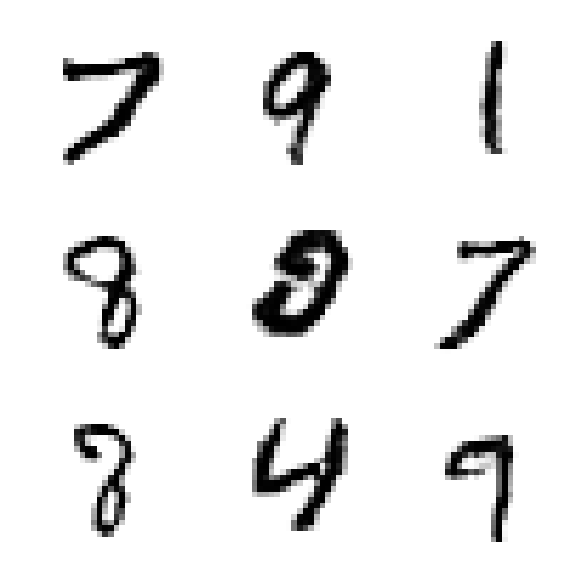 7 9 1
8 7
8 4 9